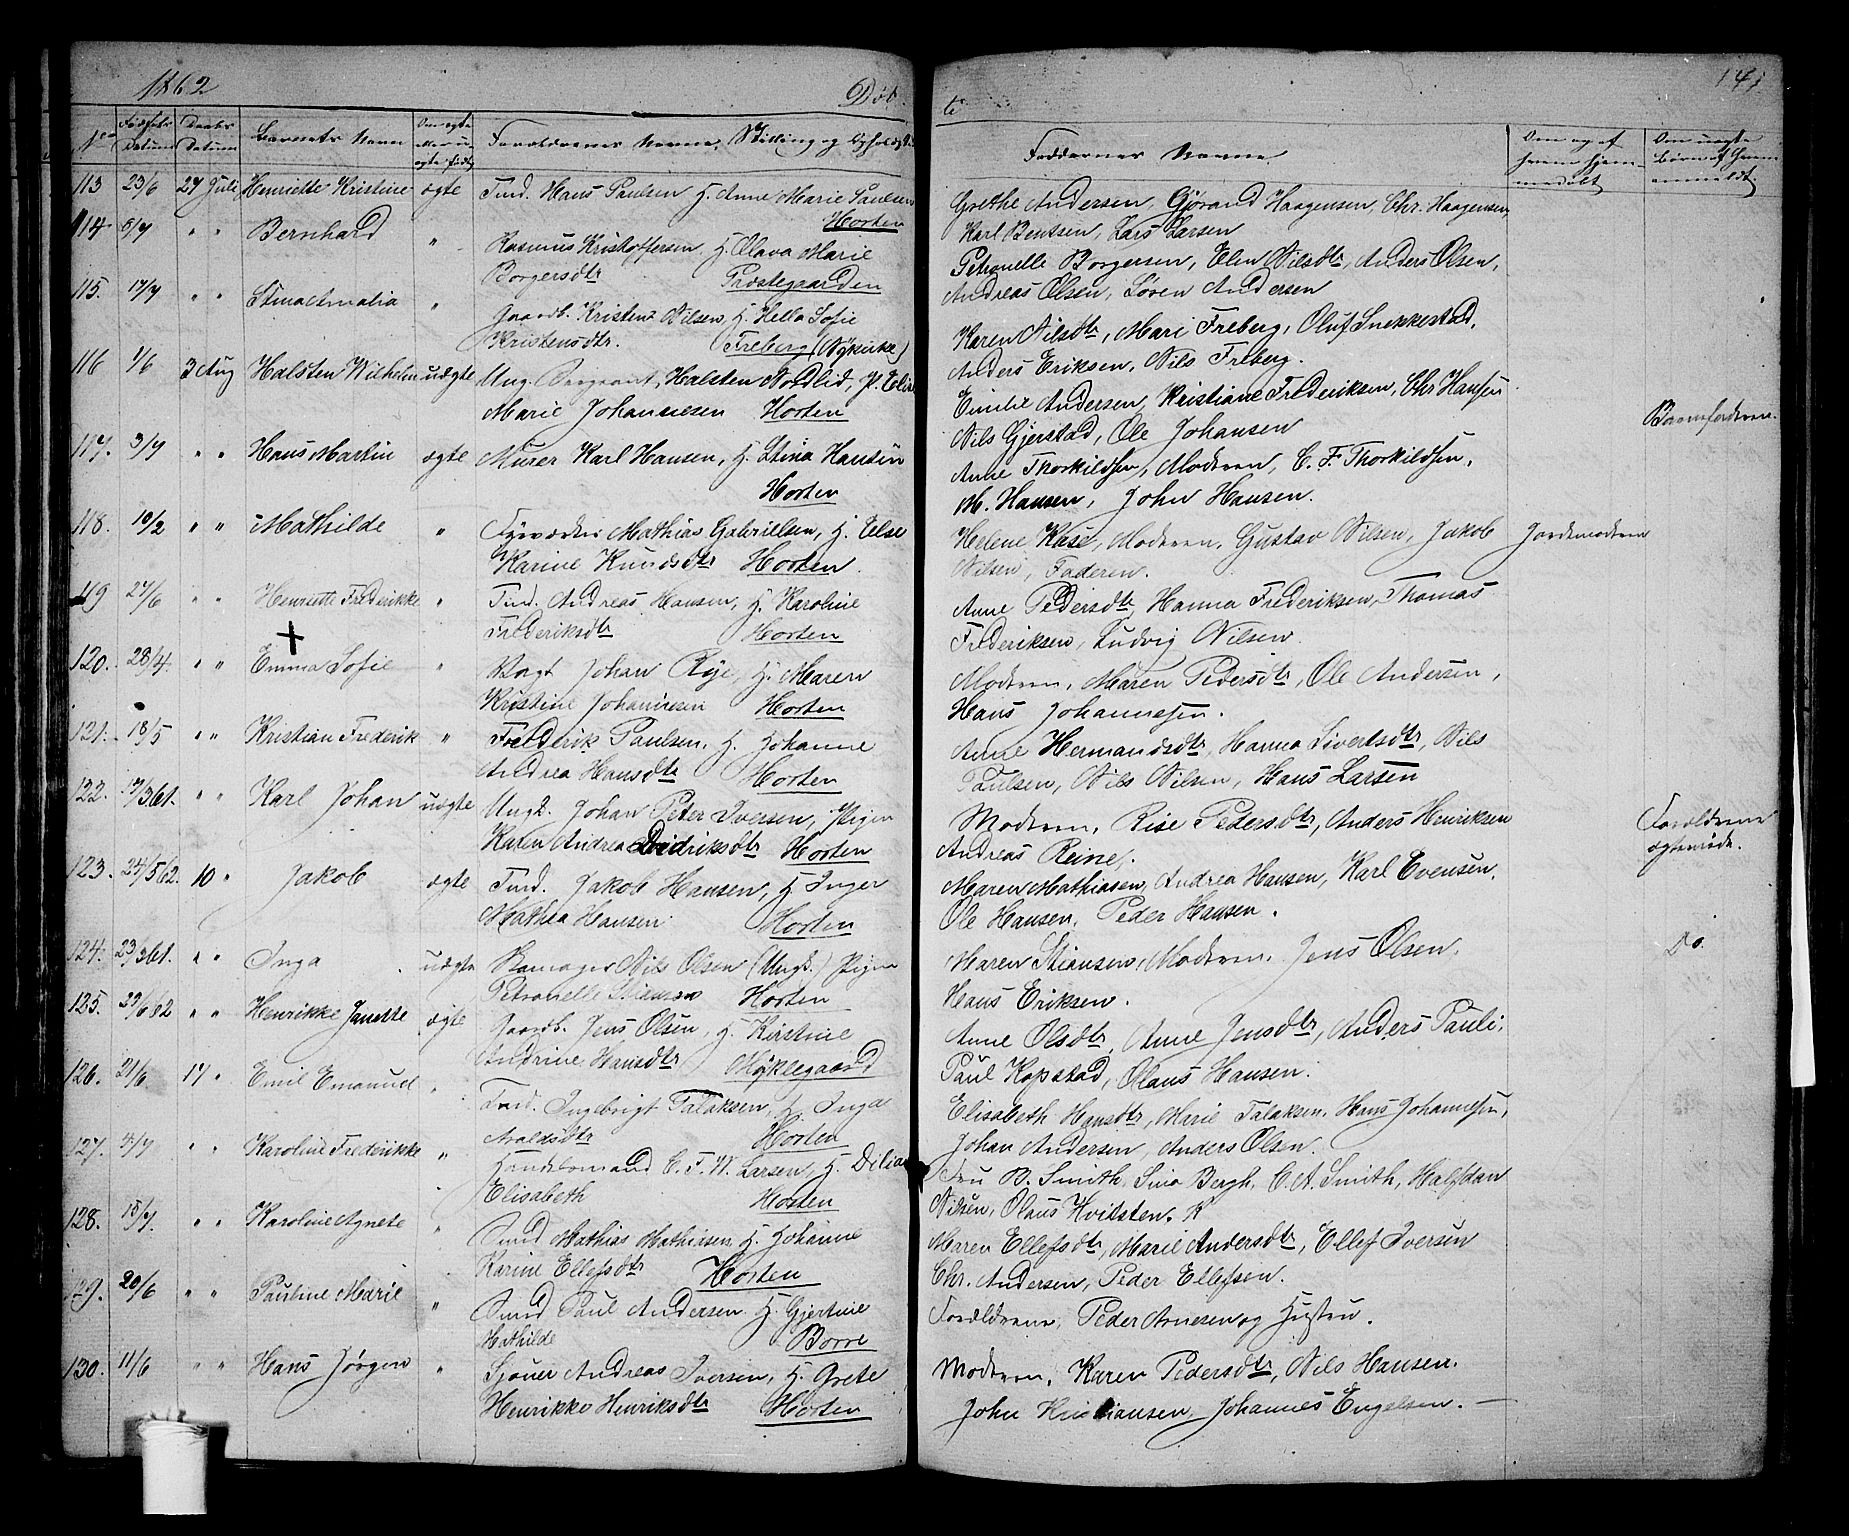 1862
Døb
te
141
No
Fødsels Datum
Daabs Datum
Barnets Navn
Om ægte eller uægte født
Forældrenes Navne, Stilling og Opholdssted
Faddernes Navne
Om og af hvem hjemmedøbt
Om uægte Børn af hvem anmeldt
113 23/6 27 Juli Henriette Kristine ægte Tmd. Hans Paulsen H. Anne Marie Paulsen
Horten
Grethe Andersen, Gjørand Haagensen, Chr. Haagensen,
Karl Bentsen, Lars Larsen
114 6/7 " " Bernhard " Rasmus Kristoffersen H. Olava Marie
Borgersdtr Præstegaarden
Petronelle Borgersen, Elen Nilsdtr, Anders Olsen,
Andreas Olsen, Søren Andersen
115. 17/7 " " Stina Amalia " Gaardb. Kristen Nilsen, H. Hella Sofie
Kristensdtr. Freberg (Nykirke)
Karen Nilsdtr, Mari Freberg, Oluf Snekkestad,
Anders Eriksen, Nils Freberg.
116 1/6 3 Aug Halsten Wilhelm uægte Ung. Sergeant, Halsten Nordlid, P. Elise
Marie Johannesen Horten
Emilie Andersen, Kristiane Frederiksen, Chr Hansen
Nils Gjerstad, Ole Johansen
Barnefaderen.
117. 3/7 " " Hans Martin ægte Murer Karl Hansen, H. Stina Hansen
Horten
Anne Thorkildsen, Moderen, C. F. Thorkildsen,
M. Hansen, John Hansen.
118. 10/2 " " Mathilde " Fyrværker Mathias Gabrielsen, H. Else
Karine Knudsdtr Horten.
Helene Kase, Moderen, Gustav Nilsen, Jakob
Nilsen, Faderen.
Jordemoderen
119 27/6 " " Henriette Frederikke " Tmd. Andreas Hansen, H. Karoline
Frederiksdtr Horten
Anne Pedersdtr, Hanna Frederiksen, Thomas
Frederiksen, Ludvig Nilsen.
120. 28/4. " " Emma Sofie " Vagt Johan Røje, H. Maren
Kristine Johannesen Horten
Moderen, Maren Pedersdtr, Ole Andersen,
Hans Johannesen.
121. 18/5 " " Kristian Frederik " Frederik Paulsen, H. Johanne
Andrea Hansdtr Horten
Anne Hermandsdtr, Hanna Sivertsdtr, Nils
Paulsen, Nils Nilsen, Hans Larsen
122. 17/3 61. " " Karl Johan uægte Ungk. Johan Peter Iversen, Pigen
Karen Andrea Didriksdtr Horten
Moderen, Rise Pedersdtr, Anders Henriksen
Andreas Reine.
Forældrene
ægteviede.
123. 24/5 62. 10 " Jakob ægte Tmd. Jakob Hansen, H. Inger
Mathea Hansen Horten
Maren Mathiasen, Andrea Hansen, Karl Evensen,
Ole Hansen, Peder Hansen.
124. 23/3 61. " " Inga uægte Skomager Nils Olsen (Ungk.) Pigen
Petronelle Stiansen Horten
Maren Stiansen, Moderen, Jens Olsen,
Hans Eriksen.
Do.
125. 29/6 62 " " Henrikke Janette ægte Gaardb. Jens Olsen, H. Kirstine
Andrine Hansdtr Myklegaard
Anne Olsdtr, Anne Jensdtr, Anders Pauli,
Paul Kopstad, Olaus Hansen.
126. 21/6 17 " Emil Emanuel " Tmd. Ingebrigt Talaksen, H. Inga
Avaldsdtr Horten
Elisabeth Hansdtr, Marie Talaksen, Hans Johannesen,
Johan Andersen, Anders Olsen.
127. 4/7 " " Karoline Frederikke " Handelsmand C. F. W. Larsen, H. Dilia
Elisabeth Horten
Fru B. Smith, Sina Bergh, C. A. Smith, Halfdan
Nilsen, Olaus Hvidsten.
128. 15/7. " " Karoline Agnete " Smed Mathias Mathiasen H. Johanne
Karine Ellefsdtr Horten
Maren Ellefsdtr, Marie Andersdtr, Ellef Iversen
Chr. Andersen, Peder Ellefsen.
129. 20/6 " " Pauline Marie " Smed Paul Andersen H. Gjertine
Mathilde Borre
Forældrene, Peder Arnesen og Hustru.
130. 11/6 " " Hans Jørgen " Sjøuer Andreas Iversen, H. Grete
Henrikke Henriksdtr Horten
Moderen, Karen Pedersdtr, Nils Hansen.
John Kristiansen, Johannes Engelsen.